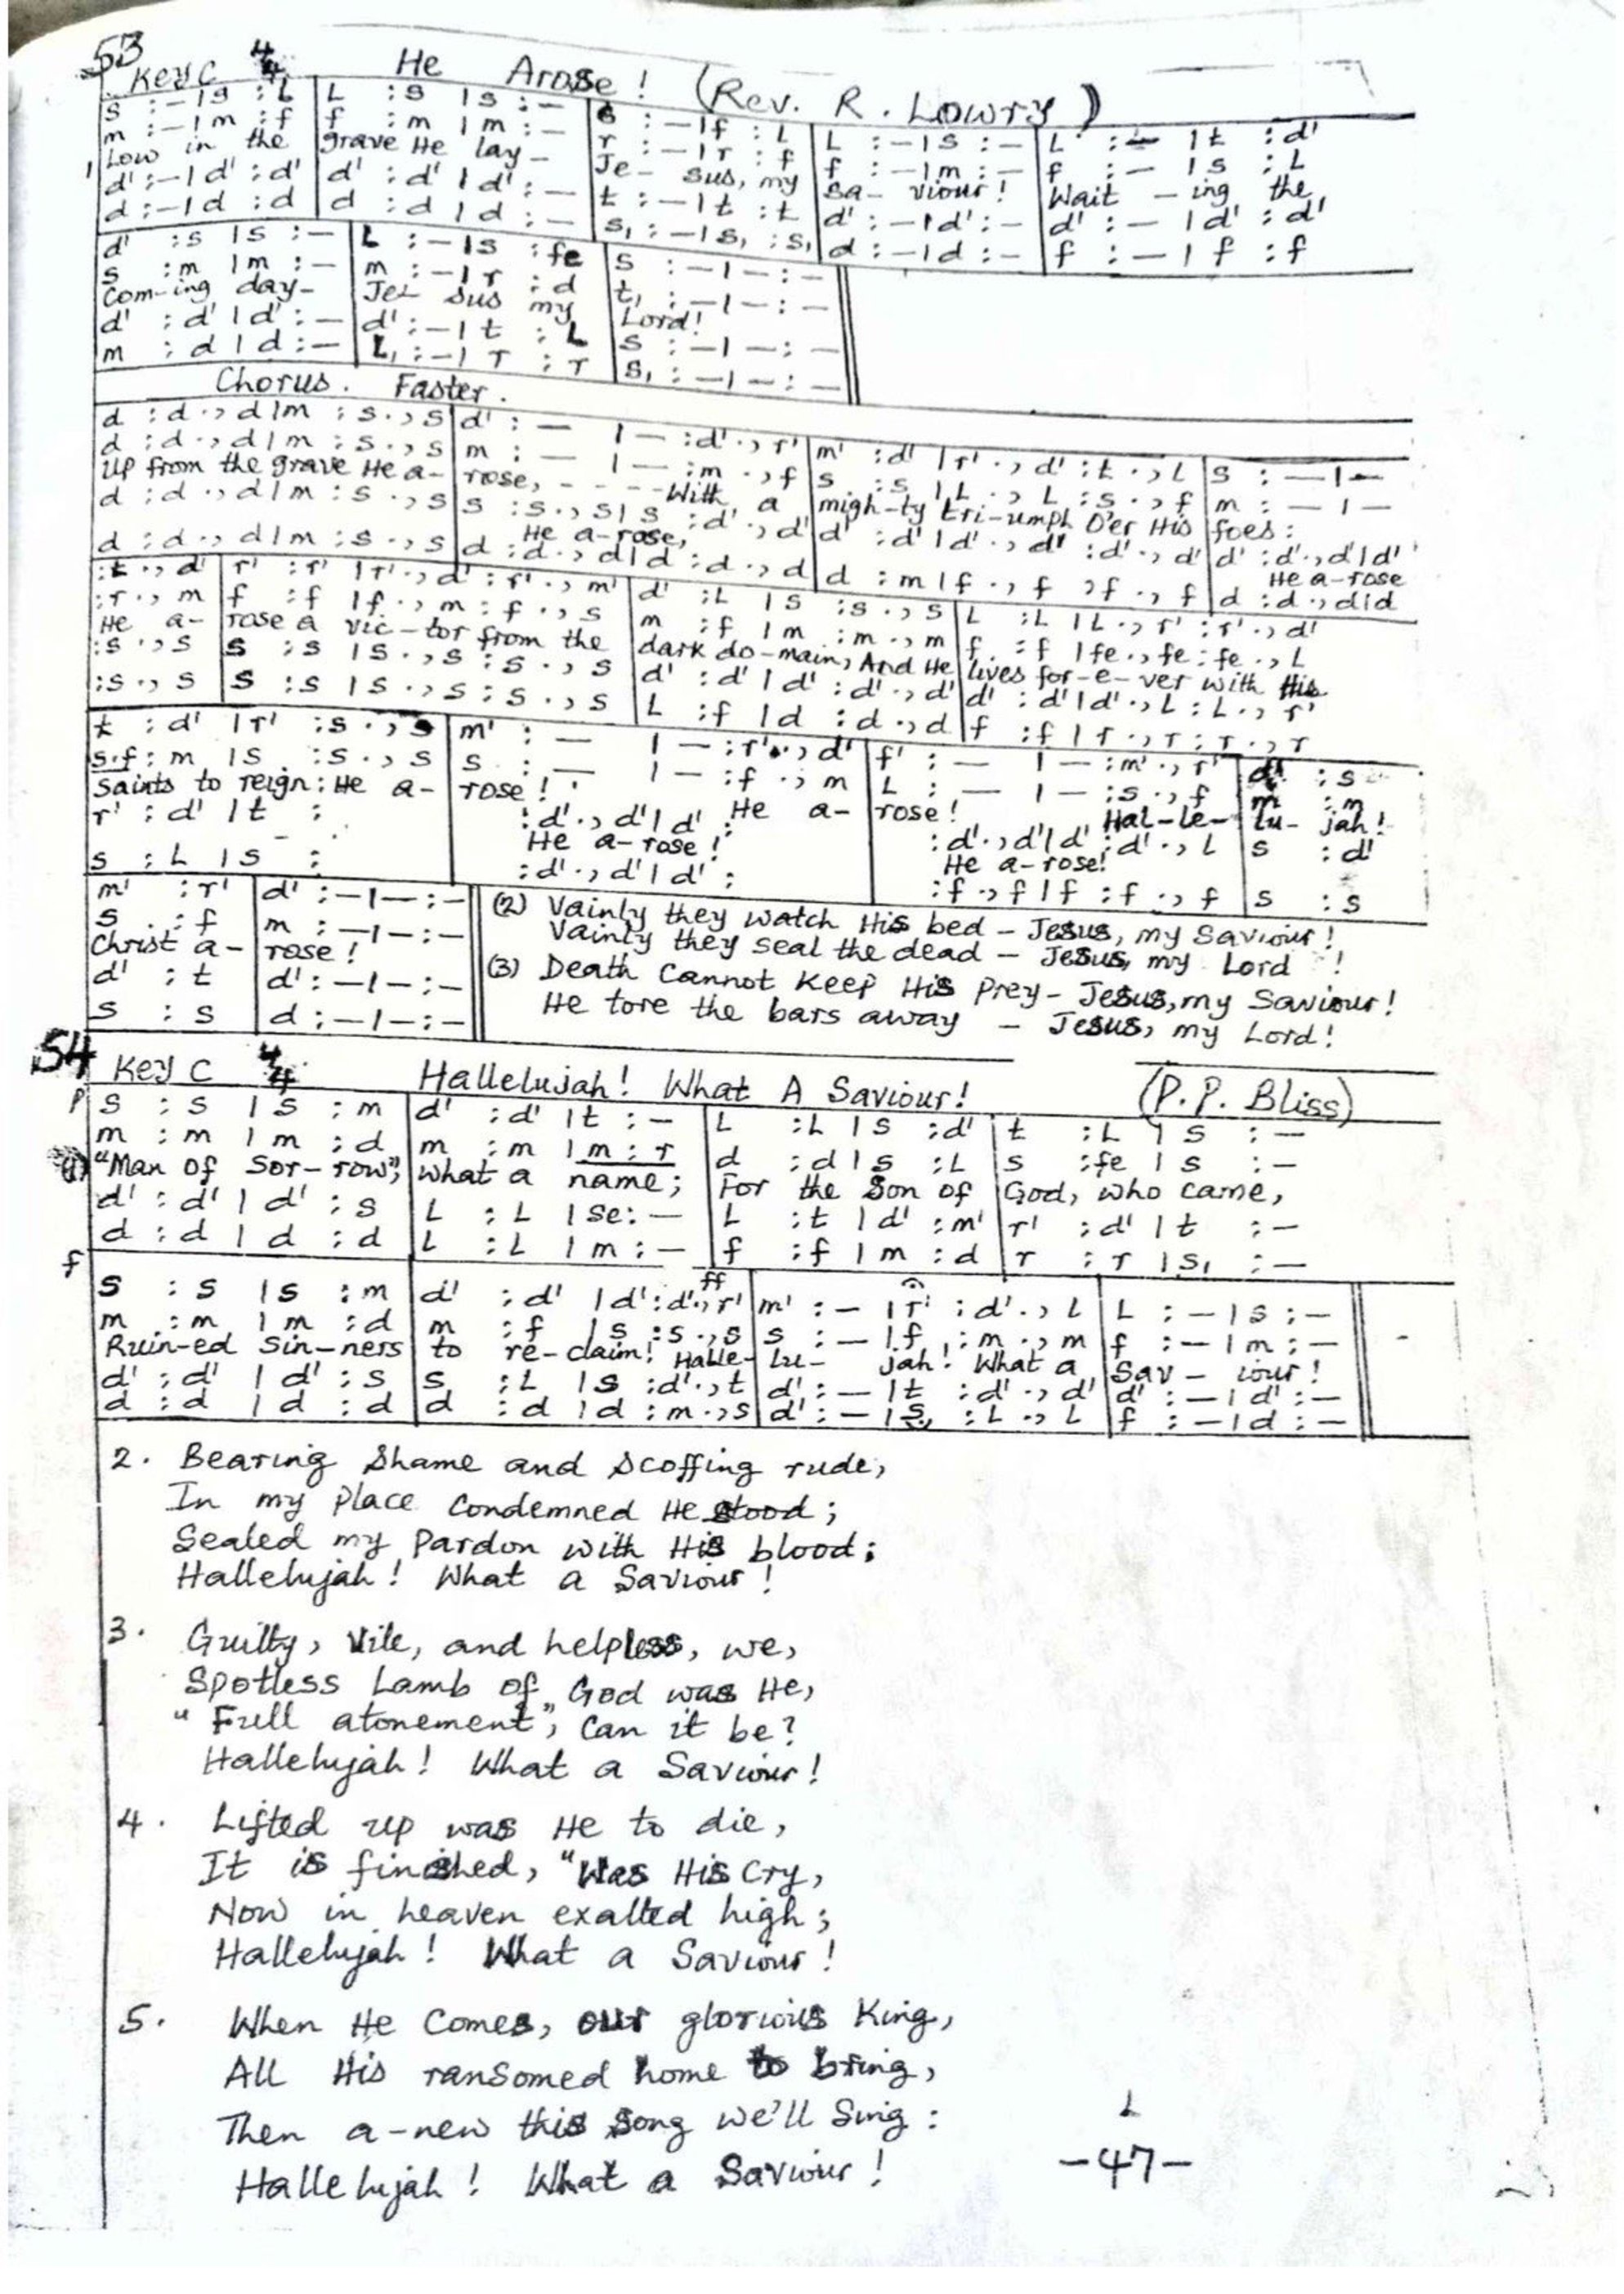 53
Key C 4/4 He Arose! (Rev. R. Lowry)
s :-|s :L | L :s |s :- | s :-|f :L | L :-|s :- | L :- |t :d'
m :-|m :f | f :m |m :- | r :-|r :f | f :-|m :- | f :- |s :L
1 Low in the grave He lay- Je- sus, my Sa- viour! Wait - ing the
d' :-|d' :d' | d' :d' |d' :- | t :-|t :t | d' :-|d' :- | d' :- |d' :d'
d :-|d :d | d :d |d :- | s₁ :-|s₁ :s₁ | d :-|d :- | f :- |f :f
d' :s |s :- | L :-|s :fe | s :-|-:-
s :m |m :- | m :-|r :d | t₁ :-|-:-
Com-ing day- Je- sus my Lord!
d' :d' |d' :- | d' :-|t :L | s :-|-:-
m :d |d :- | L₁ :-|r :r | s₁ :-|-:-
Chorus. Faster.
d :d .,d|m :s .,s | d' :- |- :d' .,r' | m' :d' |r' .,d' :t .,L | s :-|-
d :d .,d|m :s .,s | m :- |- :m .,f | s :s |L .,L :s .,f | m :-|-
Up from the grave He a- rose, - - - - With a migh-ty tri-umph O'er His foes:
d :d .,d|m :s .,s | s :s .,s|s :d' .,d' | d' :d' |d' .,d' :d' .,d' | d' :d' .,d'|d'
He a-rose, He a-rose
d :d .,d|m :s .,s | d :d .,d|d :d .,d | d :m |f .,f :f .,f | d :d .,d|d
:t .,d' | r' :r' |r' .,d' :r' .,m' | d' :L |s :s .,s | L :L |L .,r' :r' .,d'
:r .,m | f :f |f .,m :f .,s | m :f |m :m .,m | f :f |fe .,fe :fe .,L
He a- rose a vic-tor from the dark do-main, And He lives for-e-ver with His
:s .,s | s :s |s .,s :s .,s | d' :d' |d' :d' .,d' | d' :d' |d' .,L :L .,r'
:s .,s | s :s |s .,s :s .,s | L :f |d :d .,d | f :f |r .,r :r .,r
t :d' |r' :s .,s | m' :- |- :r' .,d' | f' :- |- :m' .,r' | d' :s
s.f :m |s :s .,s | s :- |- :f .,m | L :- |- :s .,f | m :m
Saints to reign: He a- rose! He a- rose! Hal-le- lu- jah!
r' :d' |t : | :d' .,d'|d' : | :d' .,d'|d' :d' .,L | s :d'
He a-rose! He a-rose!
s :L |s : | :d' .,d'|d' : | :f .,f|f :f .,f | s :s
m' :r' | d' :-|-:-
s :f | m :-|-:-
Christ a- rose!
d' :t | d' :-|-:-
s :s | d :-|-:-
(2) Vainly they watch His bed - Jesus, my Saviour!
Vainly they seal the dead - Jesus, my Lord !
(3) Death Cannot Keep His Prey - Jesus, my Saviour!
He tore the bars away - Jesus, my Lord!
54
Key C 4/4 Hallelujah! What A Saviour! (P.P. Bliss)
p s :s |s :m | d' :d' |t :- | L :L |s :d' | t :L |s :-
m :m |m :d | m :m |m :r | d :d |s :L | s :fe |s :-
(1) "Man of Sor-row", what a name; For the Son of God, who came,
d' :d' |d' :s | L :L |se :- | L :t |d' :m' | r' :d' |t :-
d :d |d :d | L :L |m :- | f :f |m :d | r :r |s₁ :-
f ff
s :s |s :m | d' :d' |d' :d' .,r' | m' :- |r' :d' .,L | L :-|s :-
m :m |m :d | m :f |s :s .,s | s :- |f :m .,m | f :-|m :-
Ruin-ed Sin-ners to re-claim! Halle- lu- jah! What a Sav- iour!
d' :d' |d' :s | s :L |s :d' .,t | d' :- |t :d' .,d' | d' :-|d' :-
d :d |d :d | d :d |d :m .,s | d' :- |s :L .,L | f :-|d :-
2. Bearing Shame and Scoffing rude,
In my place Condemned He stood;
Sealed my Pardon with His blood;
Hallelujah! What a Saviour!
3. Guilty, Vile, and helpless, we,
Spotless Lamb of God was He,
"Full atonement", Can it be?
Hallelujah! What a Saviour!
4. Lifted up was He to die,
It is finished, "Was His Cry,
Now in heaven exalted high;
Hallelujah! What a Saviour!
5. When He Comes, our glorious King,
All His ransomed home to bring,
Then a-new this Song we'll Sing:
Hallelujah! What a Saviour!
-47-